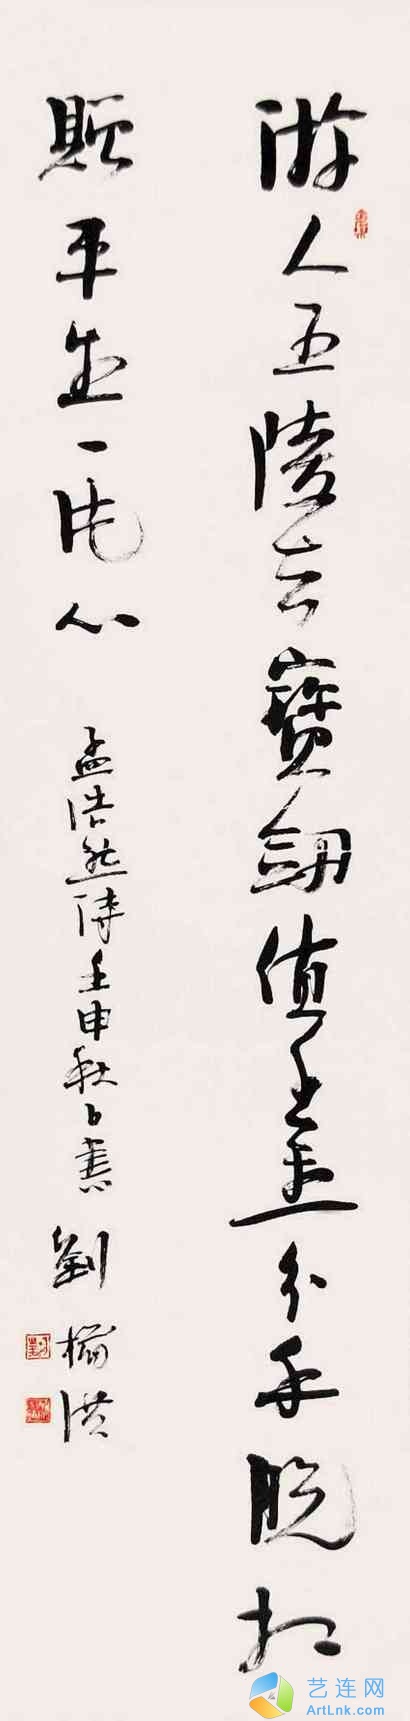 游人五陵去寶劍值千金分手脫相
贈平生一片心
孟浩然詩壬申秋日書劉楠洪
艺连网
ArtLnk.com